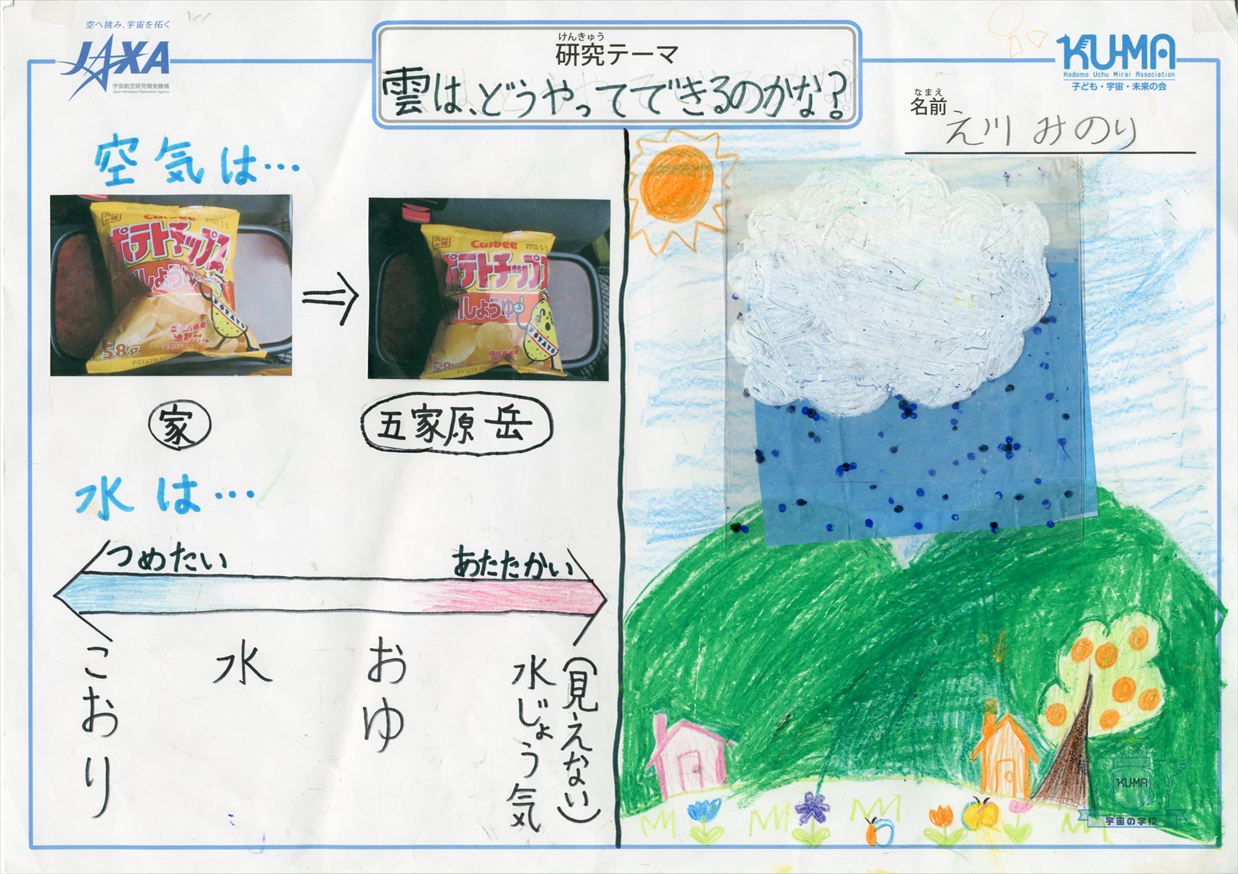 空へ挑み、宇宙を拓く
JAXA
宇宙航空研究開発機構
Japan Aerospace Exploration Agency
けんきゅう
研究テーマ
雲は、どうやってできるのかな?
KU-MA
Kodomo Uchu Mirai Association
子ども・宇宙・未来の会
なまえ
名前
え川 みのり
空気は…
Calbee
ポテトチップス
しょうゆ
58g
POTATO
⇒
Calbee
ポテトチップス
しょうゆ
58g
POTATO
家
五家原岳
水は…
つめたい
あたたかい
こおり
水
おゆ
水じょう気
(見えない)
KU-MA
宇宙の学校